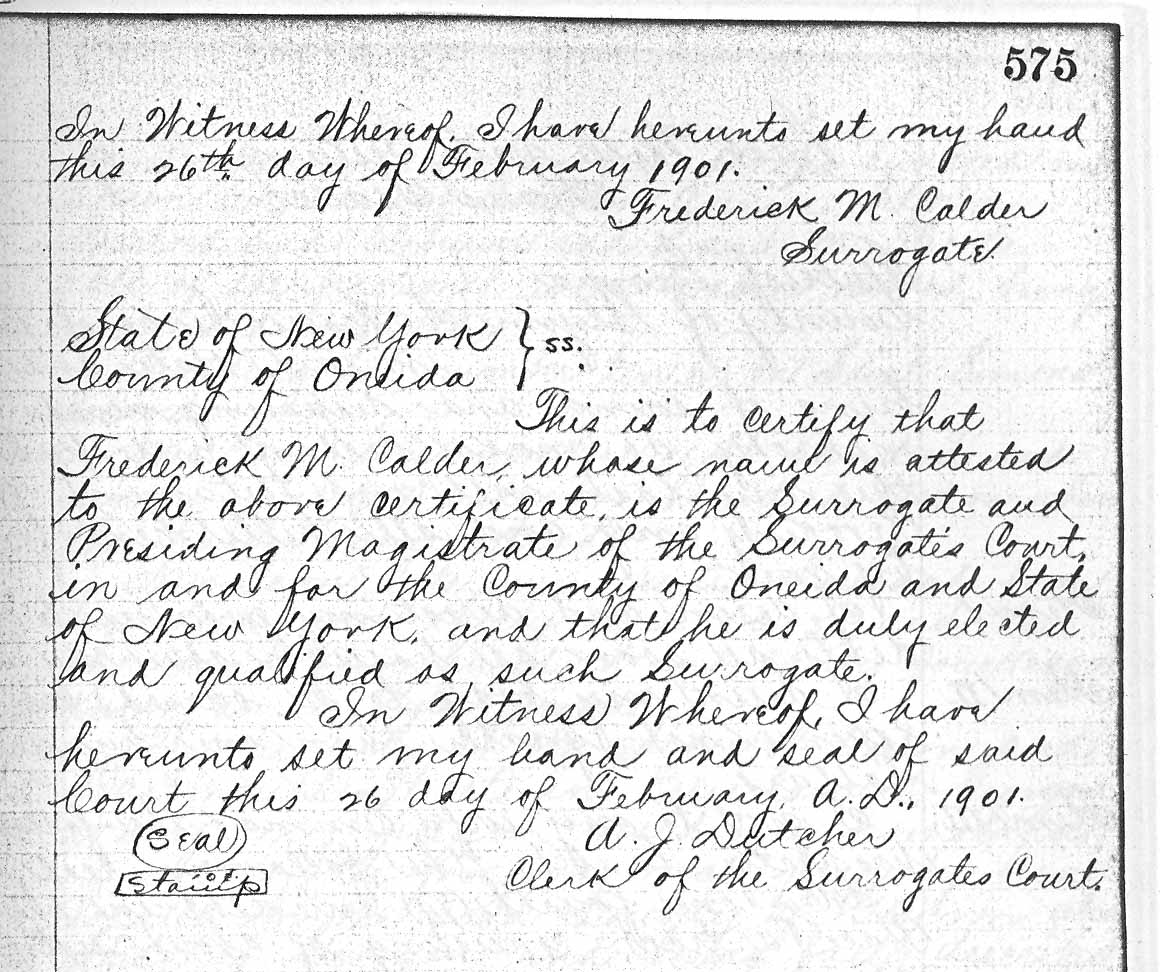 575
In Witness Whereof, I have hereunto set my hand
this 26th day of February 1901.
Frederick M. Calder
Surrogate.
State of New York } ss.
County of Oneida
This is to certify that
Frederick M. Calder, whose name is attested
to the above certificate, is the Surrogate and
Presiding Magistrate of the Surrogate's Court,
in and for the County of Oneida and State
of New York, and that he is duly elected
and qualified as such Surrogate.
In Witness Whereof, I have
hereunto set my hand and seal of said
Court this 26 day of February, A.D., 1901.
(Seal) A. J. Dutcher
Stamp Clerk of the Surrogates Court.